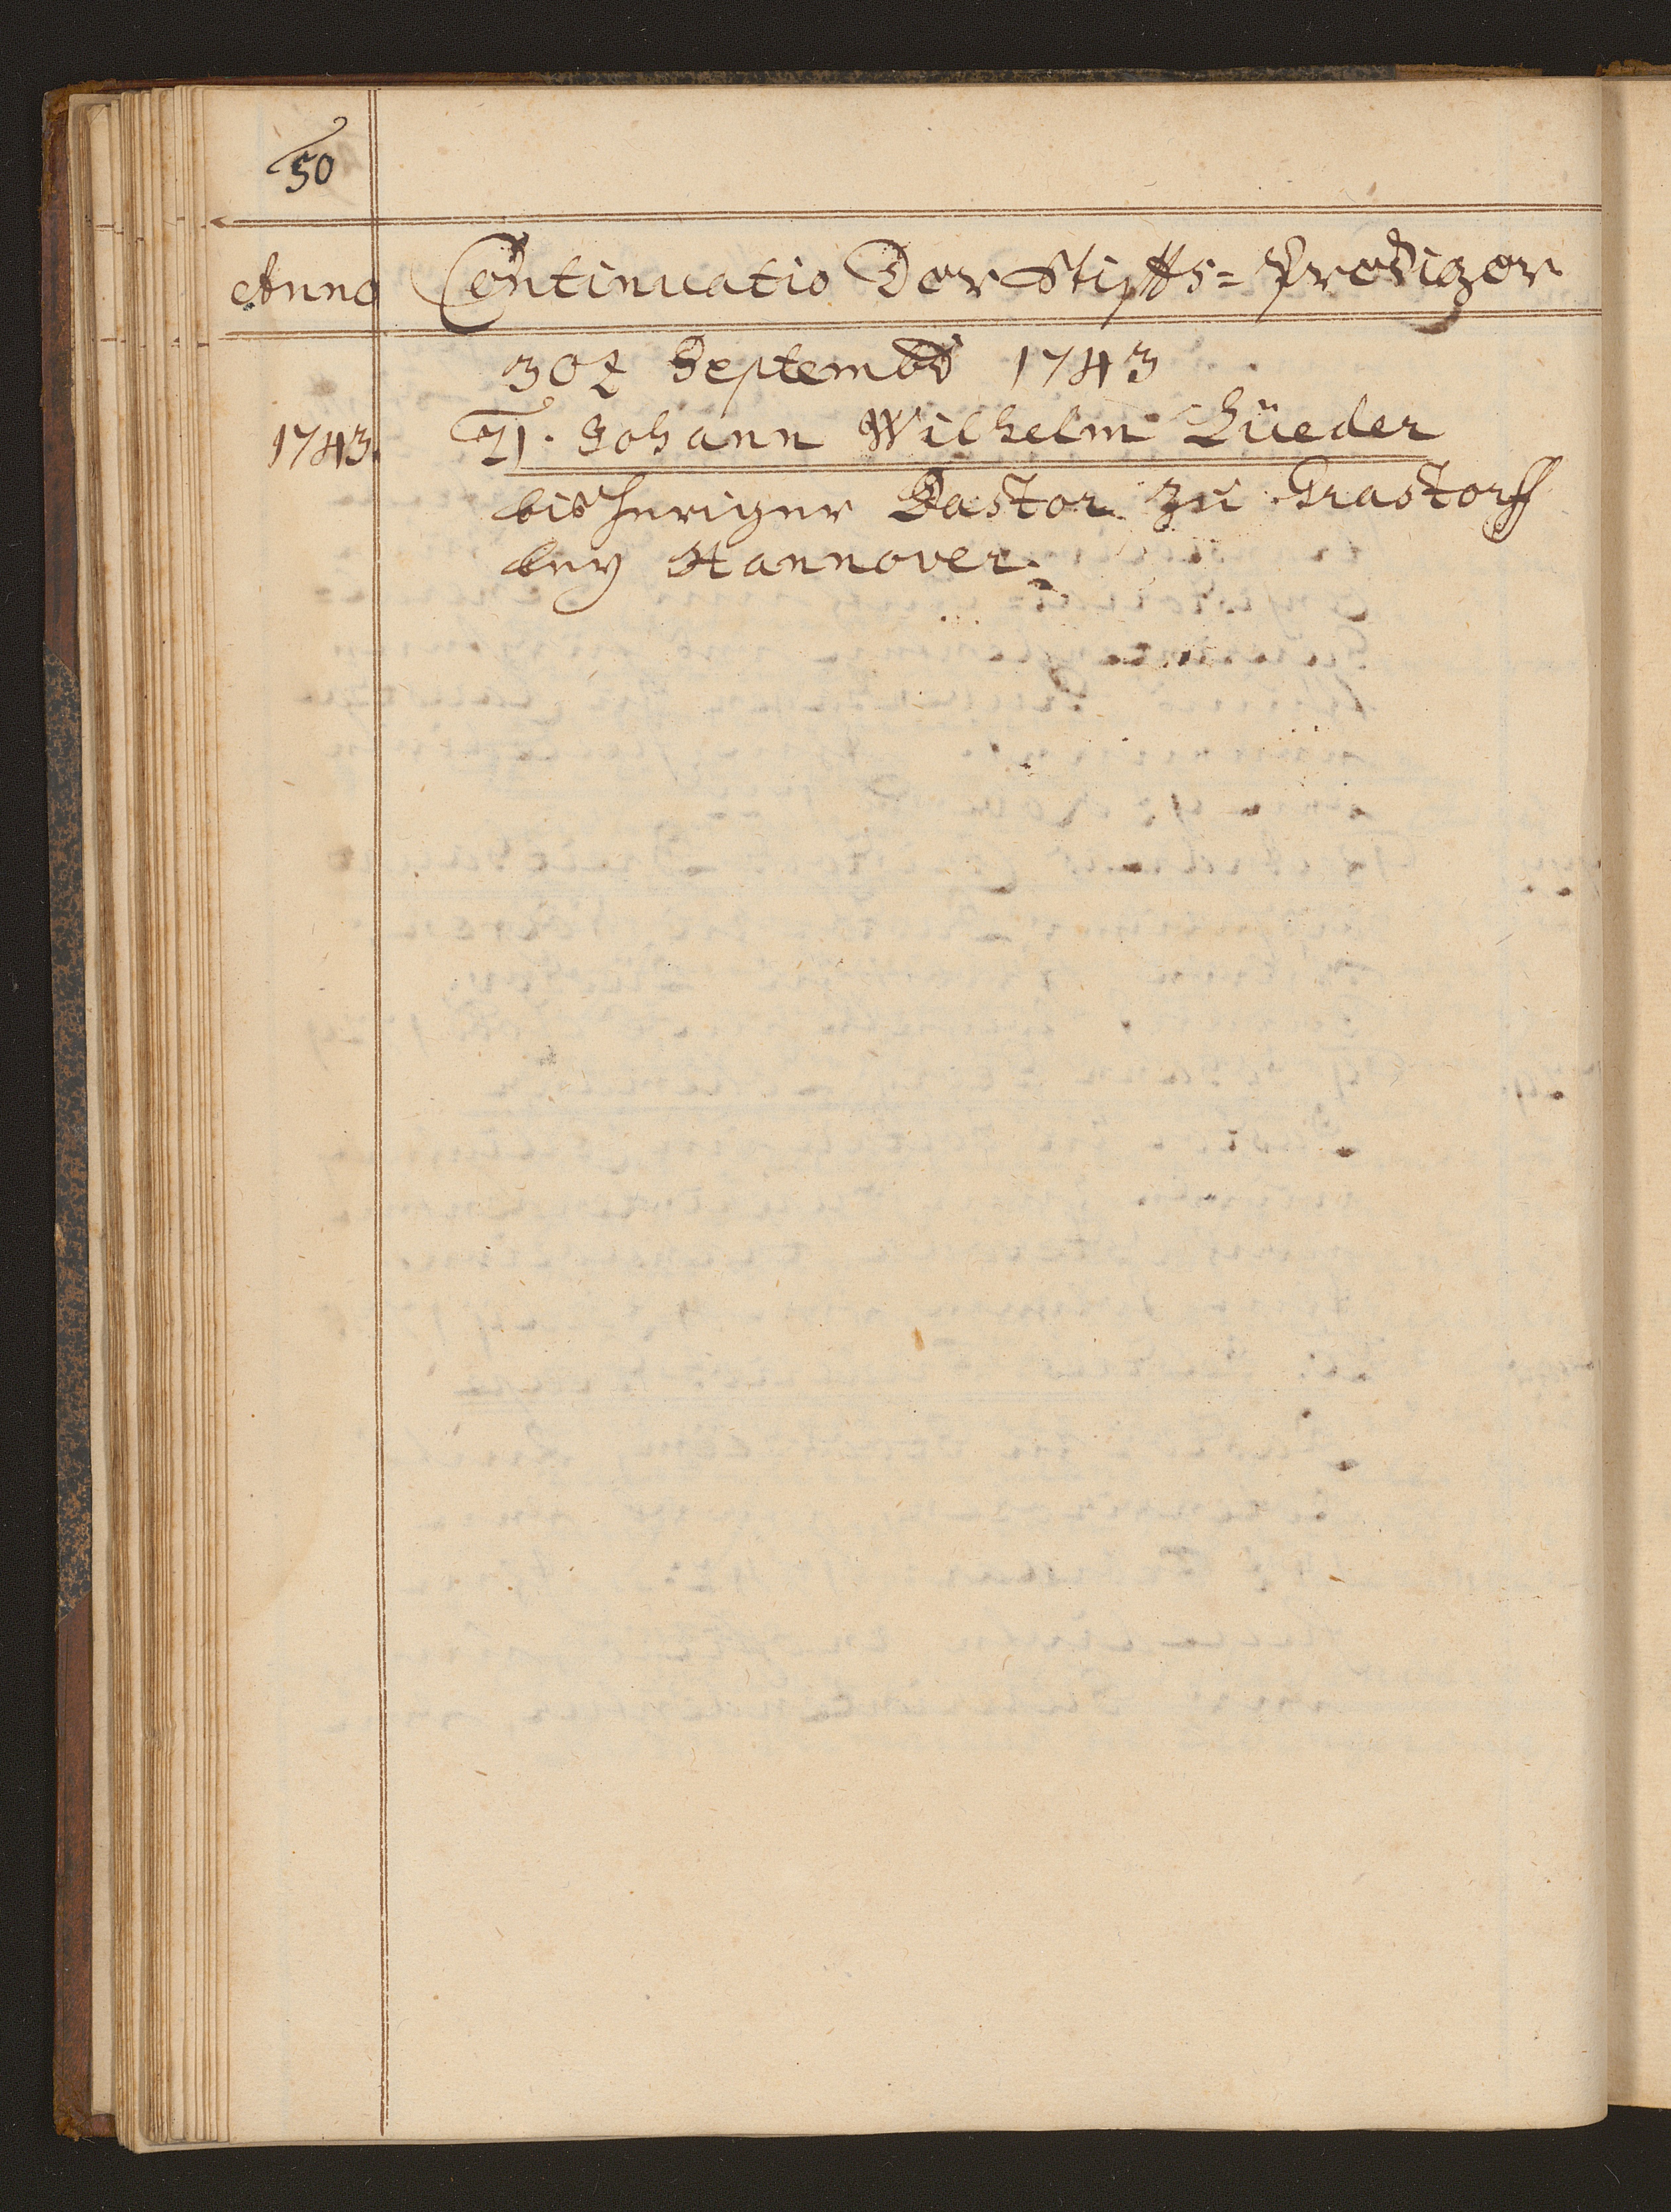 50
Anno Continuatio Der Stiffts= Prediger
30t Septembr 1743
1743. 21. Johann Wilhelm Lüeder
bisheriger Pastor zu Grastorff
bey Hannover.